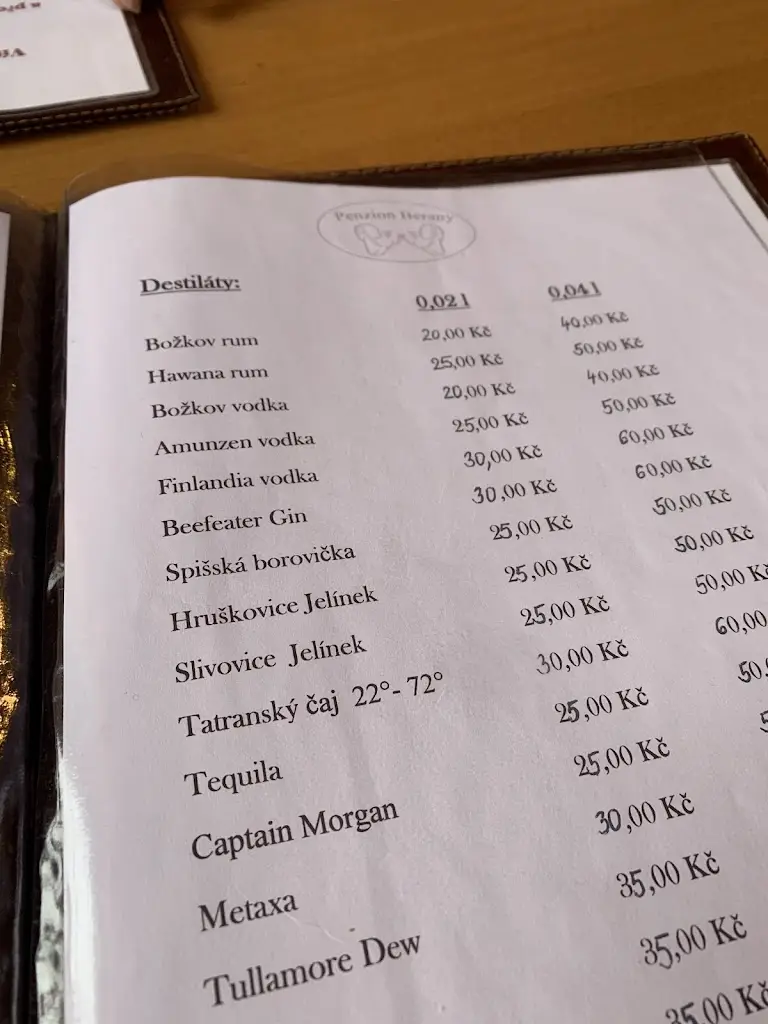 Penzion Herany
Destiláty:
0,02 l 0,04 l
Božkov rum 20,00 Kč 40,00 Kč
Hawana rum 25,00 Kč 50,00 Kč
Božkov vodka 20,00 Kč 40,00 Kč
Amunzen vodka 25,00 Kč 50,00 Kč
Finlandia vodka 30,00 Kč 60,00 Kč
Beefeater Gin 30,00 Kč 60,00 Kč
Spišská borovička 25,00 Kč 50,00 Kč
Hruškovice Jelínek 25,00 Kč 50,00 Kč
Slivovice Jelínek 25,00 Kč 50,00 Kč
Tatranský čaj 22°- 72° 30,00 Kč 60,00
Tequila 25,00 Kč
Captain Morgan 25,00 Kč
Metaxa 30,00 Kč
Tullamore Dew 35,00 Kč
35,00 Kč
35,00 Kč